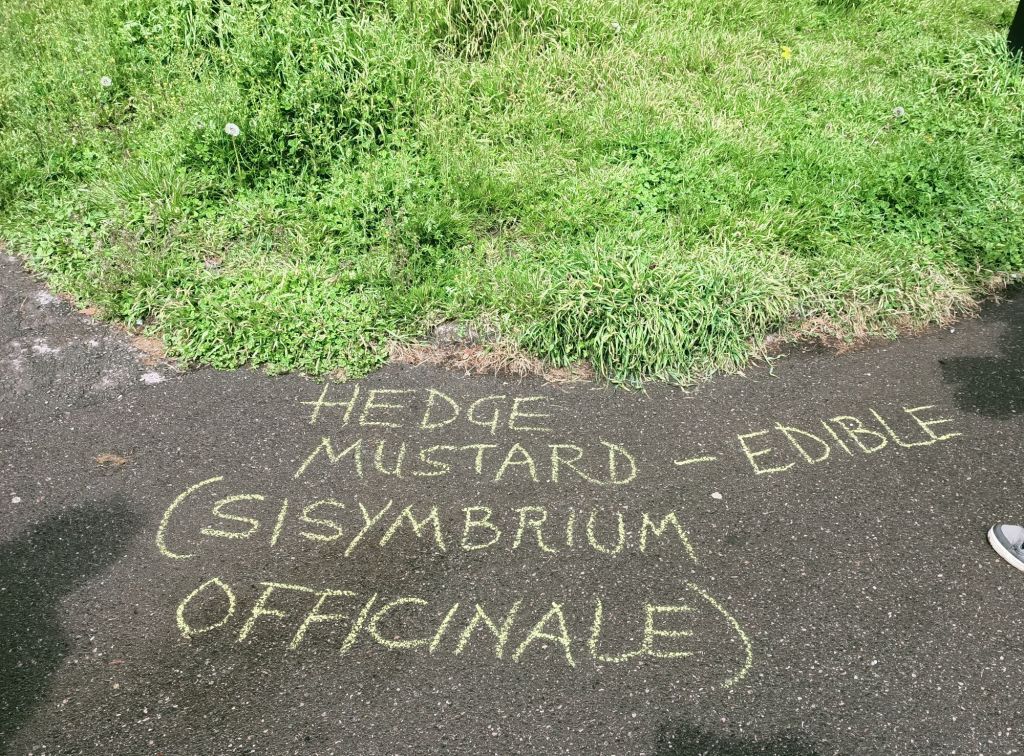 HEDGE
MUSTARD - EDIBLE
(SISYMBRIUM
OFFICINALE)